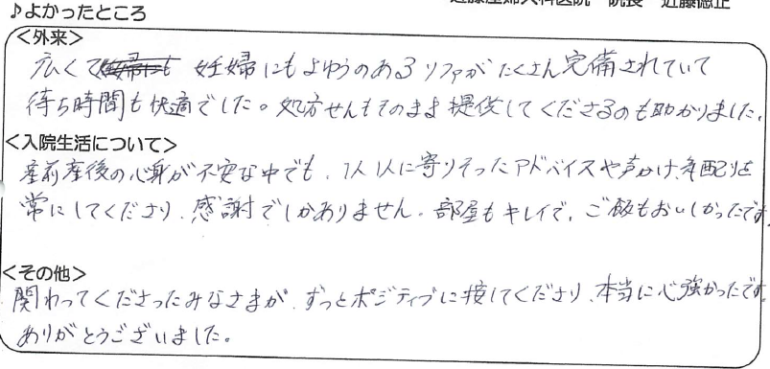 近藤産婦人科医院 院長 近藤徳正
♪よかったところ
<外来>
広くて 妊婦にもよゆうのあるソファがたくさん完備されていて
待ち時間も快適でした。処方せんもそのまま提供してくださるのも助かりました。
<入院生活について>
産前産後の心身が不安な中でも、1人1人に寄りそったアドバイスや声かけ、気配りを
常にしてくださり、感謝でしかありません。部屋もキレイで、ご飯もおいしかったです。
<その他>
関わってくださったみなさまが、ずっとポジティブに接してくださり、本当に心強かったです。
ありがとうございました。